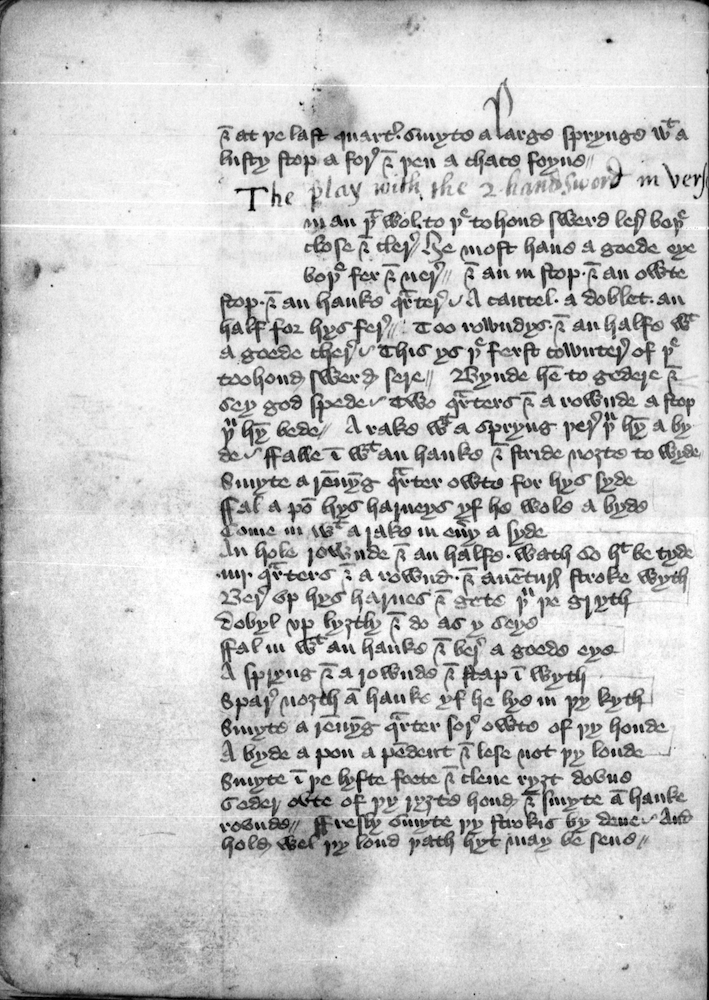 & at þe last quarter smyte a large sprynge wt a
lusty stop a for & þen a chace foyne
The play with the 2 hand sword in verse
man þt wol to þe to hond swerd ler boþe
close & cler He most haue a goode eye
boþe fer & ner & an in stop & an owte
stop & an hauke qrter A cantel a doblet an
half for hys fer Too rowndys & an halfe wt
a goode cher This ys þe ferst cownter of þe
too hond swerd sere Bynde hē to gedere &
sey god spede Two qrters & a rownde a stop
þu hȳ bede A rake wt a spryng þer þu hȳ a by
de ffalle ī wt an hauke & stride noʒte to wyde
Smyte a rēnȳg qrter owte for hys syde
ffal a pō hys harneys yf he wole a byde
Come in wt a rake in eny a syde
An hole rownde & an halfe wath so ht be tyde
.iiij. qrters & a rownd & auēturs stroke wyth
Ber vp hys harnes & gete þu þe gryth
Dobyl vp lyʒtly & do as y seye
ffal in wt an hauke & ber a goode eye
A spryng & a rownde & stap ī wyth
Spar noʒth ā hauke yf he lye in þy kyth
Smyte a rēnȳg qrter for owte of þy honde
A byde a pon a pēdent & lese not þy londe
Smyte ī þe lyfte foete & cleue ryʒt doune
Geder ovte of þy ryʒte hond & smyte ā hauke
rounde ffresly smyte þy strokis by dene And
hold wel þy lond þath hyt may be sene